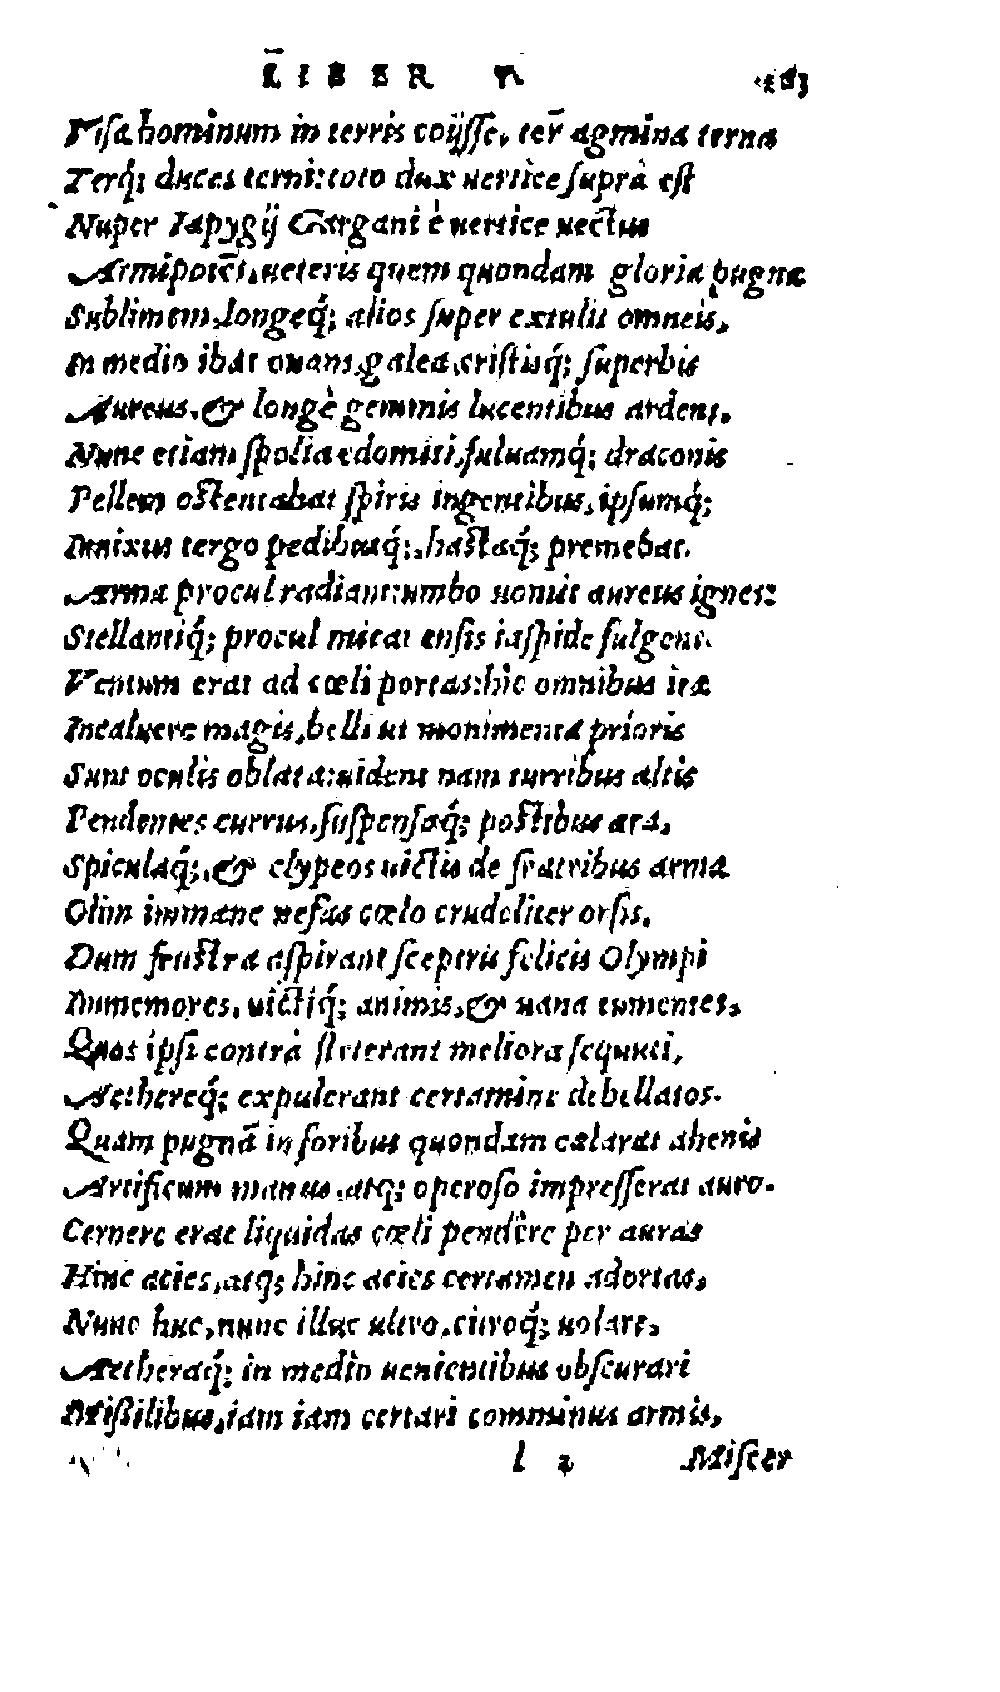 LIBER V. 163
Visa hominum in terris coijsse, ter agmina terna
Terq́; duces terni: toto dux uertice suprà est
Nuper Iapygij Gargani è uertice uectus
Armipotẽs, ueteris quem quondam gloria pugnæ
Sublimem, longeq́; alios super extulit omneis,
In medio ibat ouans, galea, cristisq́; superbis
Aureus, & longè gemmis lucentibus ardens,
Nunc etiam spolia edomiti, fuluamq́; draconis
Pellem ostentabat spiris ingentibus, ipsumq́;
Innixus tergo pedibusq́;, hastaq́; premebat.
Arma procul radiant: umbo uomit aureus ignes:
Stellantiq́; procul micat ensis iaspide fulgens.
Ventum erat ad cœli portas: hîc omnibus iræ
Incaluere magis, belli ut monimenta prioris
Sunt oculis oblata: uident nam turribus altis
Pendentes currus, suspensaq́; postibus æra,
Spiculaq́;, & clypeos uictis de fratribus arma
Olim immane nefas cœlo crudeliter orsis,
Dum frustra aspirant sceptris felicis Olympi
Immemores, uictiq́; animis, & uana tumentes,
Quos ipsi contrà steterant meliora sequuti,
Aethereq́; expulerant certamine debellatos.
Quam pugnã in foribus quondam cælarat ahenis
Artificum manus, atq; operoso impresserat auro.
Cernere erat liquidas cœli pendêre per auras
Hinc acies, atq; hinc acies certamen adortas,
Nunc huc, nunc illuc ultro, citroq́; uolare,
Aetheraq́; in medio uenientibus obscurari
Missilibus, iam iam certari comminus armis,
l 2 Miscer